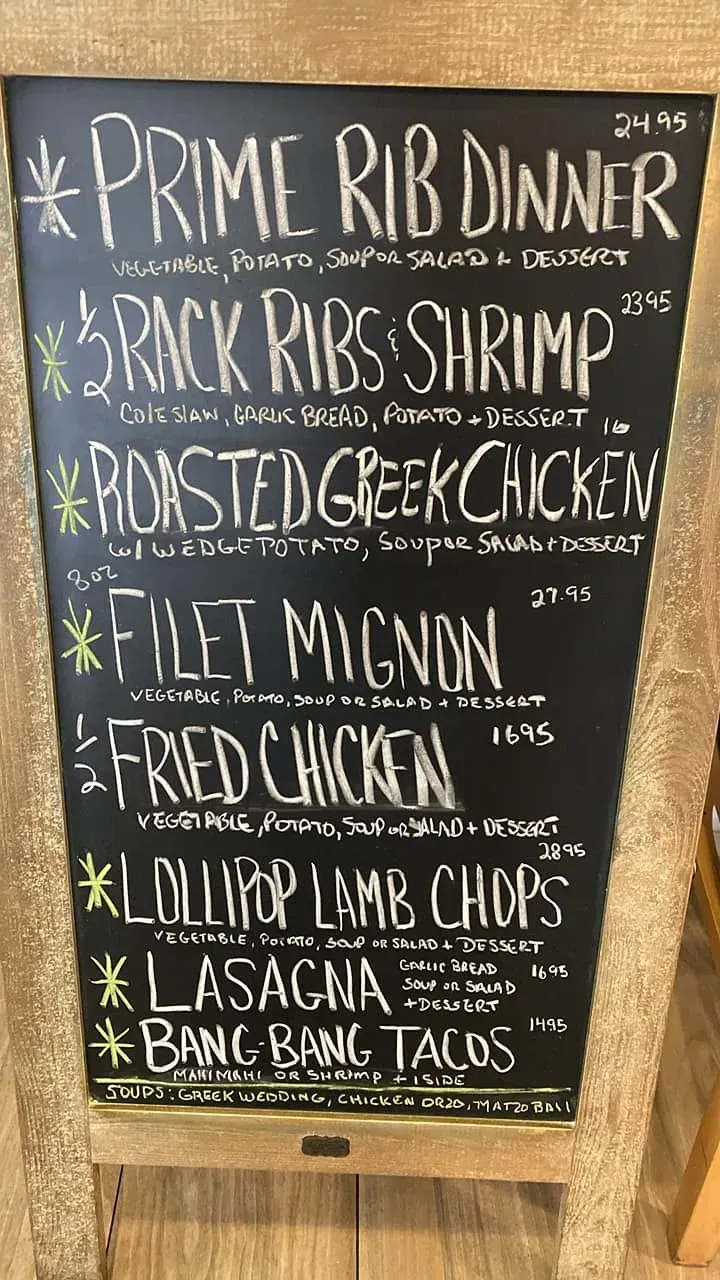 24.95
* PRIME RIB DINNER
VEGETABLE, POTATO, SOUP OR SALAD & DESSERT
23 95
* 1/2 RACK RIBS & SHRIMP
COLESLAW, GARLIC BREAD, POTATO + DESSERT 16
* ROASTED GREEK CHICKEN
W/ WEDGE POTATO, SOUP OR SALAD + DESSERT
8oz
27.95
* FILET MIGNON
VEGETABLE, POTATO, SOUP OR SALAD + DESSERT
1/2 FRIED CHICKEN 1695
VEGETABLE, POTATO, SOUP OR SALAD + DESSERT
2895
* LOLLIPOP LAMB CHOPS
VEGETABLE, POTATO, SOUP OR SALAD + DESSERT
* LASAGNA
GARLIC BREAD 1695
SOUP OR SALAD
+ DESSERT
1495
* BANG-BANG TACOS
MAHI MAHI OR SHRIMP + 1 SIDE
SOUPS: GREEK WEDDING, CHICKEN ORZO, MATZO BALL